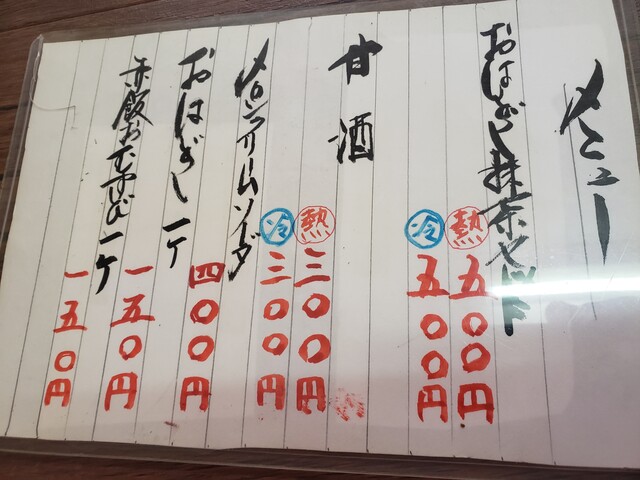 メニュー
おはぎと抹茶セット
熱 五〇〇円
冷 五〇〇円
甘酒
熱 三〇〇円
冷 三〇〇円
メロンクリームソーダ
四〇〇円
おはぎ 一ケ
一五〇円
赤飯おむすび 一ケ
一五〇円